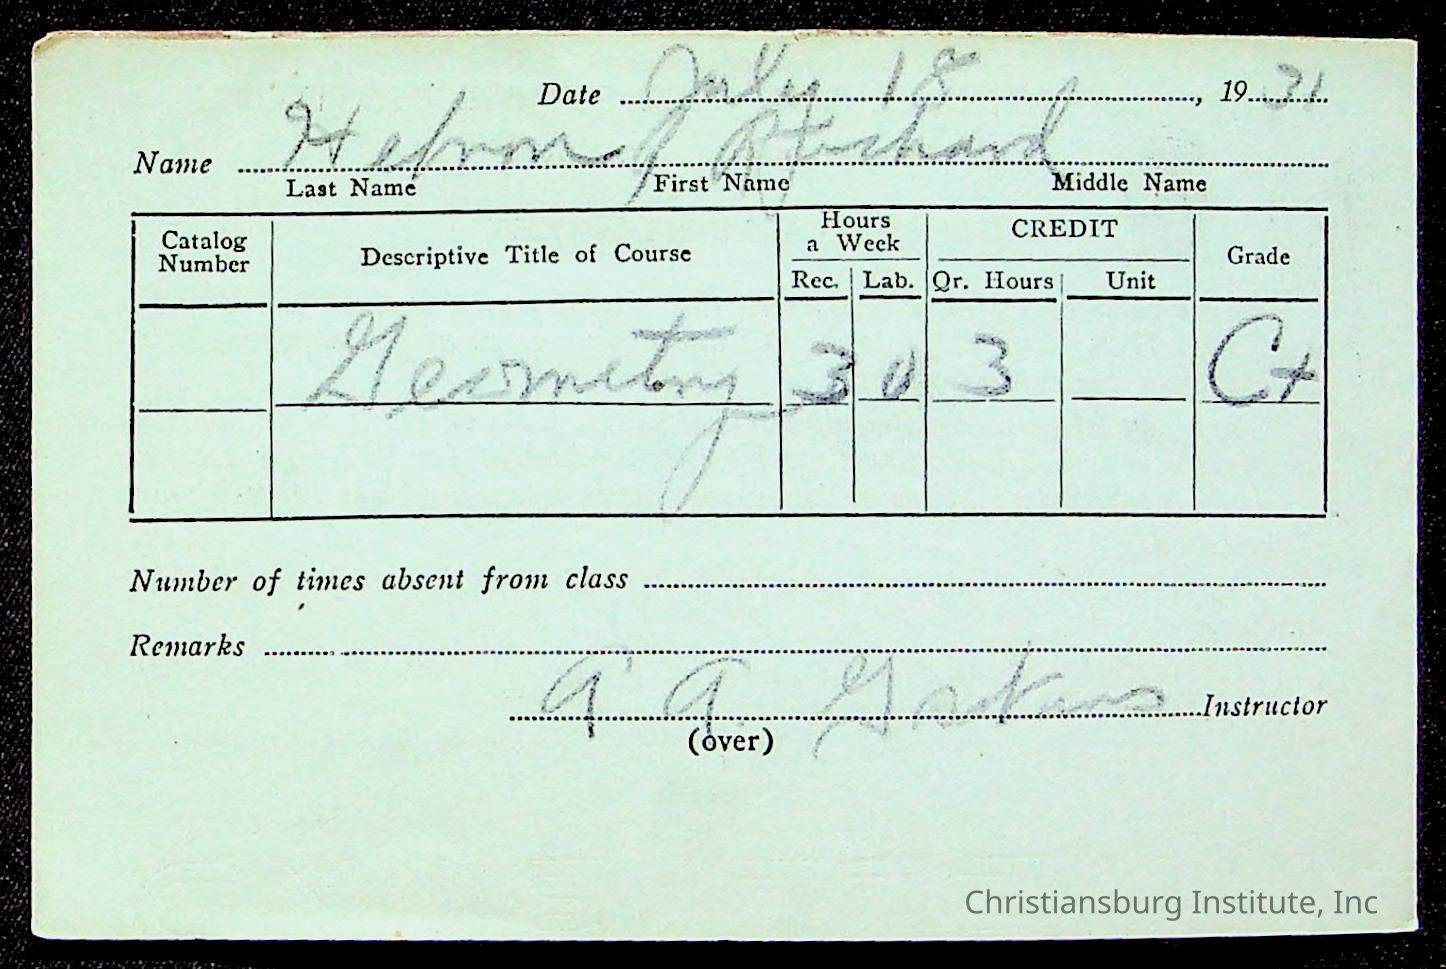 Date July 18, 1931
Name Hebron, Richard
Last Name First Name Middle Name
Catalog Number Descriptive Title of Course Hours a Week Rec. Lab. CREDIT Qr. Hours Unit Grade
Geometry 3 0 3 C+
Number of times absent from class
Remarks
A A Instructor
(over)
Christiansburg Institute, Inc